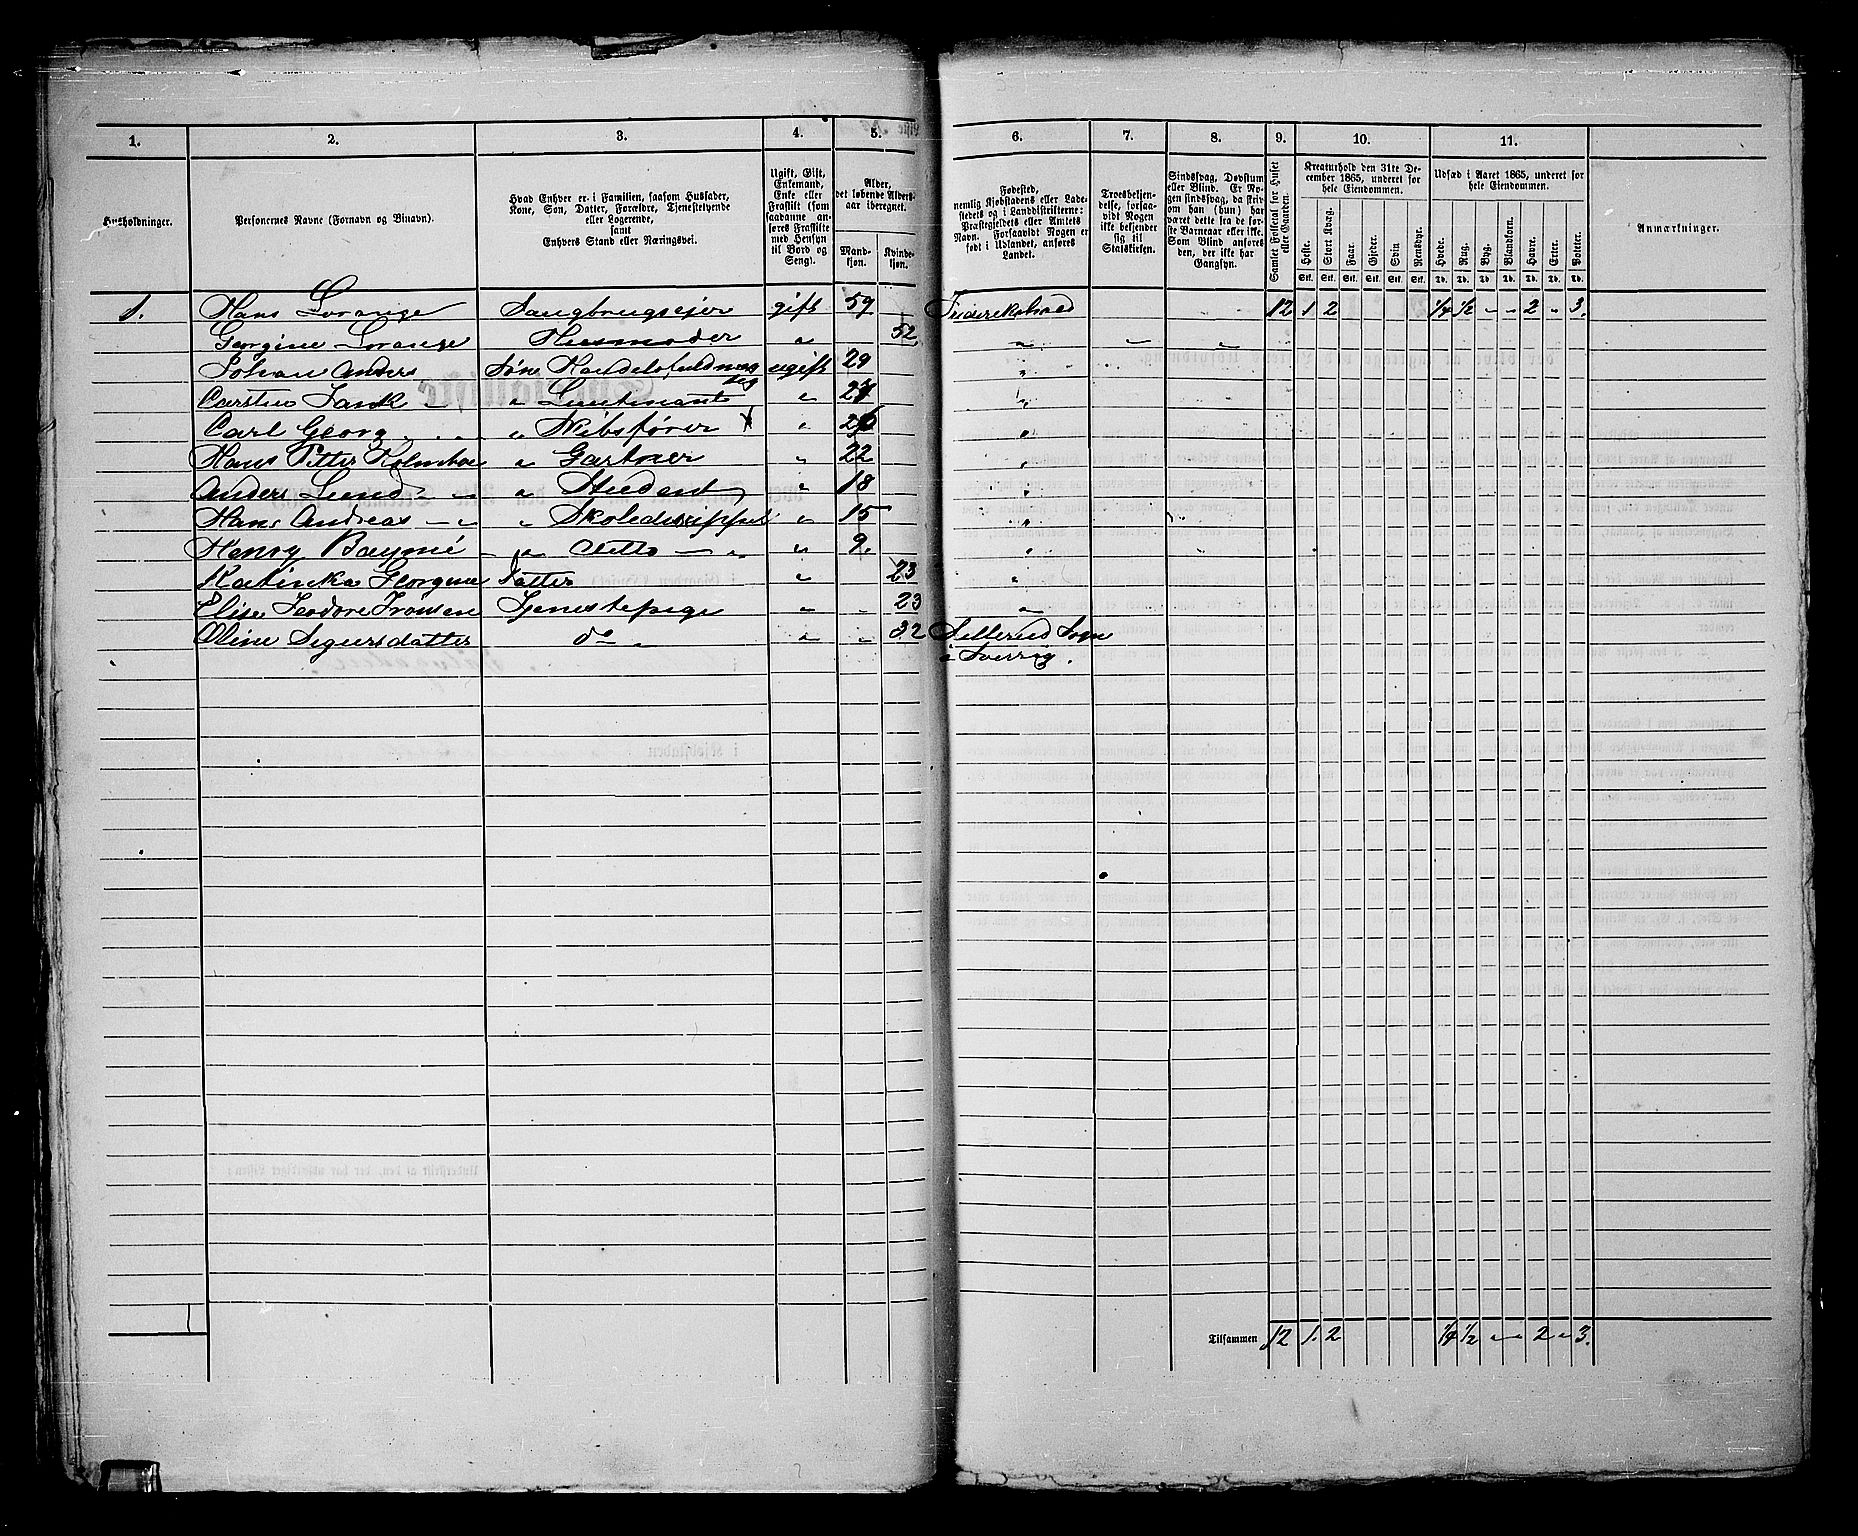 1. 2. 3. 4. 5. 6. 7. 8. 9. 10. 11.
Husholdninger.
Personernes Navne (Fornavn og Binavn).
Hvad Enhver er i Familien, saasom Husfader,
Kone, Søn, Datter, Forældre, Tjenestetyende
eller Logerende,
samt
Enhvers Stand eller Næringsvei.
Ugift, Gift,
Enkemand,
Enke eller
Fraskilt (som
saadanne an-
føres Fraskilte
med Hensyn
til Bord og
Seng).
Alder,
det løbende Alders-
aar iberegnet.
Mand-
kjøn.
Kvinde-
kjøn.
Fødested,
nemlig Kjøbstadens eller Lade-
stedets og i Landdistrikterne:
Præstegjeldets eller Amtets
Navn. Forsaavidt Nogen er
født i Udlandet, anføres
Landet.
Troesbekjen-
delse, forsaa-
vidt Nogen
ikke bekjender
sig til
Statskirken.
Sindssvag, Døvstum
eller Blind. Er No-
gen sindssvag, da skriv
om han (hun) har
været dette fra de før-
ste Barneaar eller ikke.
Som Blind anføres
den, der ikke har
Gangsyn.
Samlet Folketal for Huset
eller Gaarden.
Kreaturhold den 31te De-
cember 1865, underet for
hele Eiendommen.
Heste. Stort Kvæg. Faar. Gjeder. Svin Rensdyr.
Stk. Stk. Stk. Stk. Stk. Stk.
Udsæd i Aaret 1865, underet for
hele Eiendommen.
Hvede. Rug. Byg. Blandkorn. Havre. Erter. Poteter.
Td. Td. Td. Td. Td. Td. Td.
Anmærkninger.
1. Hans Lorange Saugbrugseier gift 59 Frederikshald 12 1 2 1/4 1/2 - - 2 - 3.
Georgine Lorange Husmoder " 52 " " "
Johan Anders Søn Handelsfuldmæg ugift 29 "
tig
Carsten Tank " Lieutnant " 27 "
Carl Georg " Skibsfører " 26 "
Hans Petter Kolmboe " Gartner " 22 "
Anders Lund " Student " 18 "
Hans Andreas " Skolediscippel " 15 "
Henry " ditto " 9. "
Katinka Georgine Datter " 23 "
Elise Teodore Tjenestepige " 23 "
Oline Sigursdatter do " 32 Sillerud Sogn
i Sverrig.
Tilsammen 12 1. 2 1/4 1/2 - - 2 - 3.